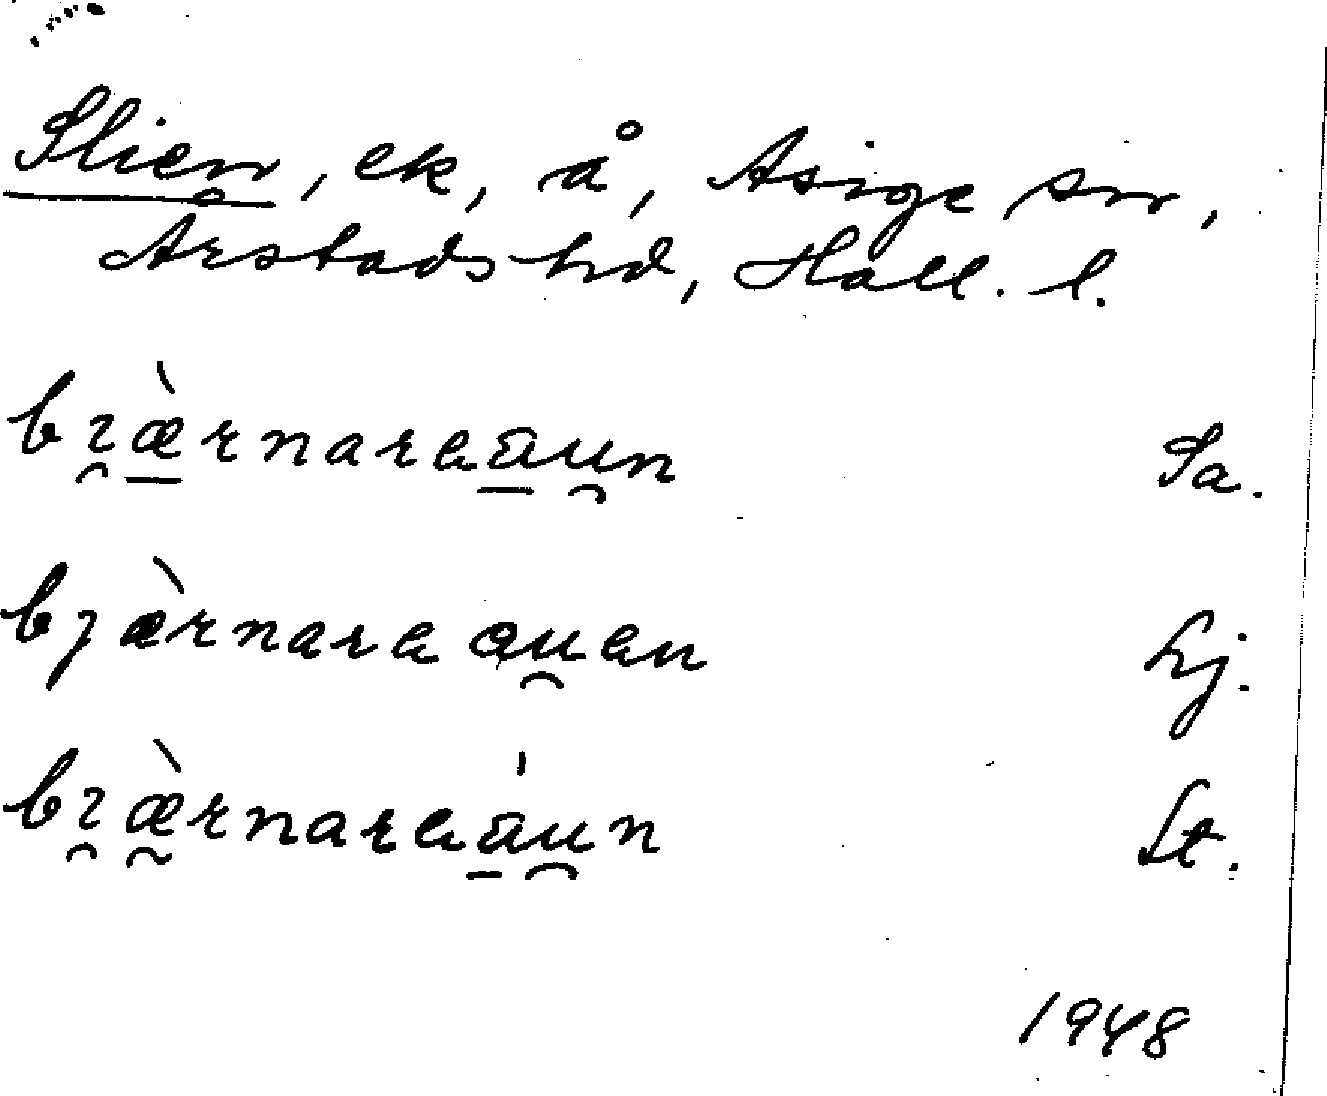 Slien, ek, å, Asige sn,
Årstads hd, Hall. l.
bɿæ̀rnareaun Sa.
bjæ̀rnara auan Lj.
bɿæ̀rnareáun St.
1948